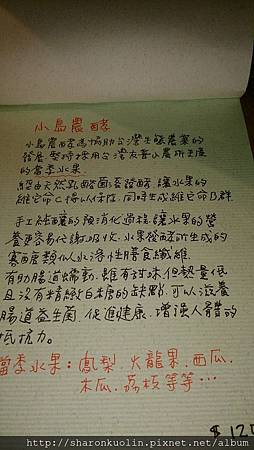 小島農酵
小島農酵為協助台灣生態農業的
發展,堅持採用台灣友善小農所生產
的當季水果。
經由天然乳酸菌活發酵,讓水果的
維它命C得以保存,同時生成維它命B群
手工釀的預消化過程,讓水果的營
養更容易代謝吸收,水果發酵所生成的
寡醣類似水溶性膳食纖維
有助腸道蠕動,雖有甜味但熱量低
且沒有精緻白糖的缺點,可以滋養
腸道益生菌,促進健康,增強人體的
抵抗力。
當季水果:鳳梨、火龍果、西瓜、
木瓜、荔枝等等…
$120
http://sharonkuolin.pixnet.net/album